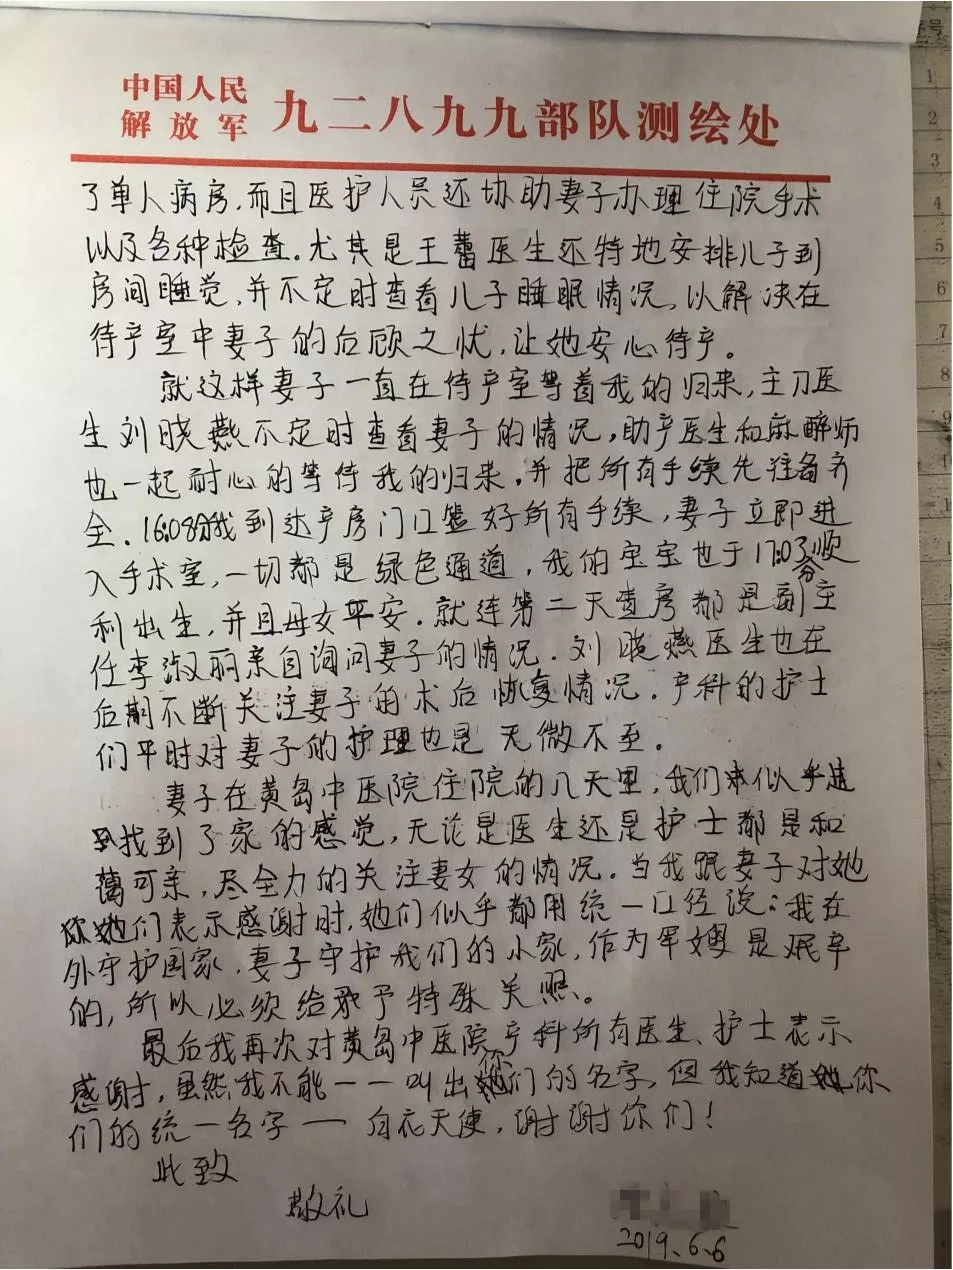 中国人民
解放军 九二八九九部队测绘处
了单人病房，而且医护人员还协助妻子办理住院手术
以及各种检查。尤其是王蕾医生还特地安排儿子到
房间睡觉，并不定时查看儿子睡眠情况，以解决在
待产室中妻子的后顾之忧，让她安心待产。
就这样妻子一直在待产室等着我的归来，主刀医
生刘晓燕不定时查看妻子的情况，助产医生和麻醉师
也一起耐心的等待我的归来，并把所有手续先准备齐
全。16:08分我到达产房门口签好所有手续，妻子立即进
入手术室，一切都是绿色通道，我的宝宝也于17:03分顺
利出生，并且母女平安。就连第二天查房都是副主
任李淑丽亲自询问妻子的情况。刘晓燕医生也在
后期不断关注妻子的术后恢复情况。产科的护士
们平时对妻子的护理也是无微不至。
妻子在黄岛中医院住院的几天里，我们似乎
找到了家的感觉，无论是医生还是护士都是和
蔼可亲，尽全力的关注妻女的情况。当我跟妻子对
她们表示感谢时，她们似乎都用统一口径说：我在
外守护国家，妻子守护我们的小家，作为军嫂是艰辛
的，所以必须给予特殊关照。
最后我再次对黄岛中医院产科所有医生、护士表示
感谢，虽然我不能一一叫出你们的名字，但我知道你
们的统一名字——白衣天使，谢谢你们！
此致
敬礼
2019.6.6